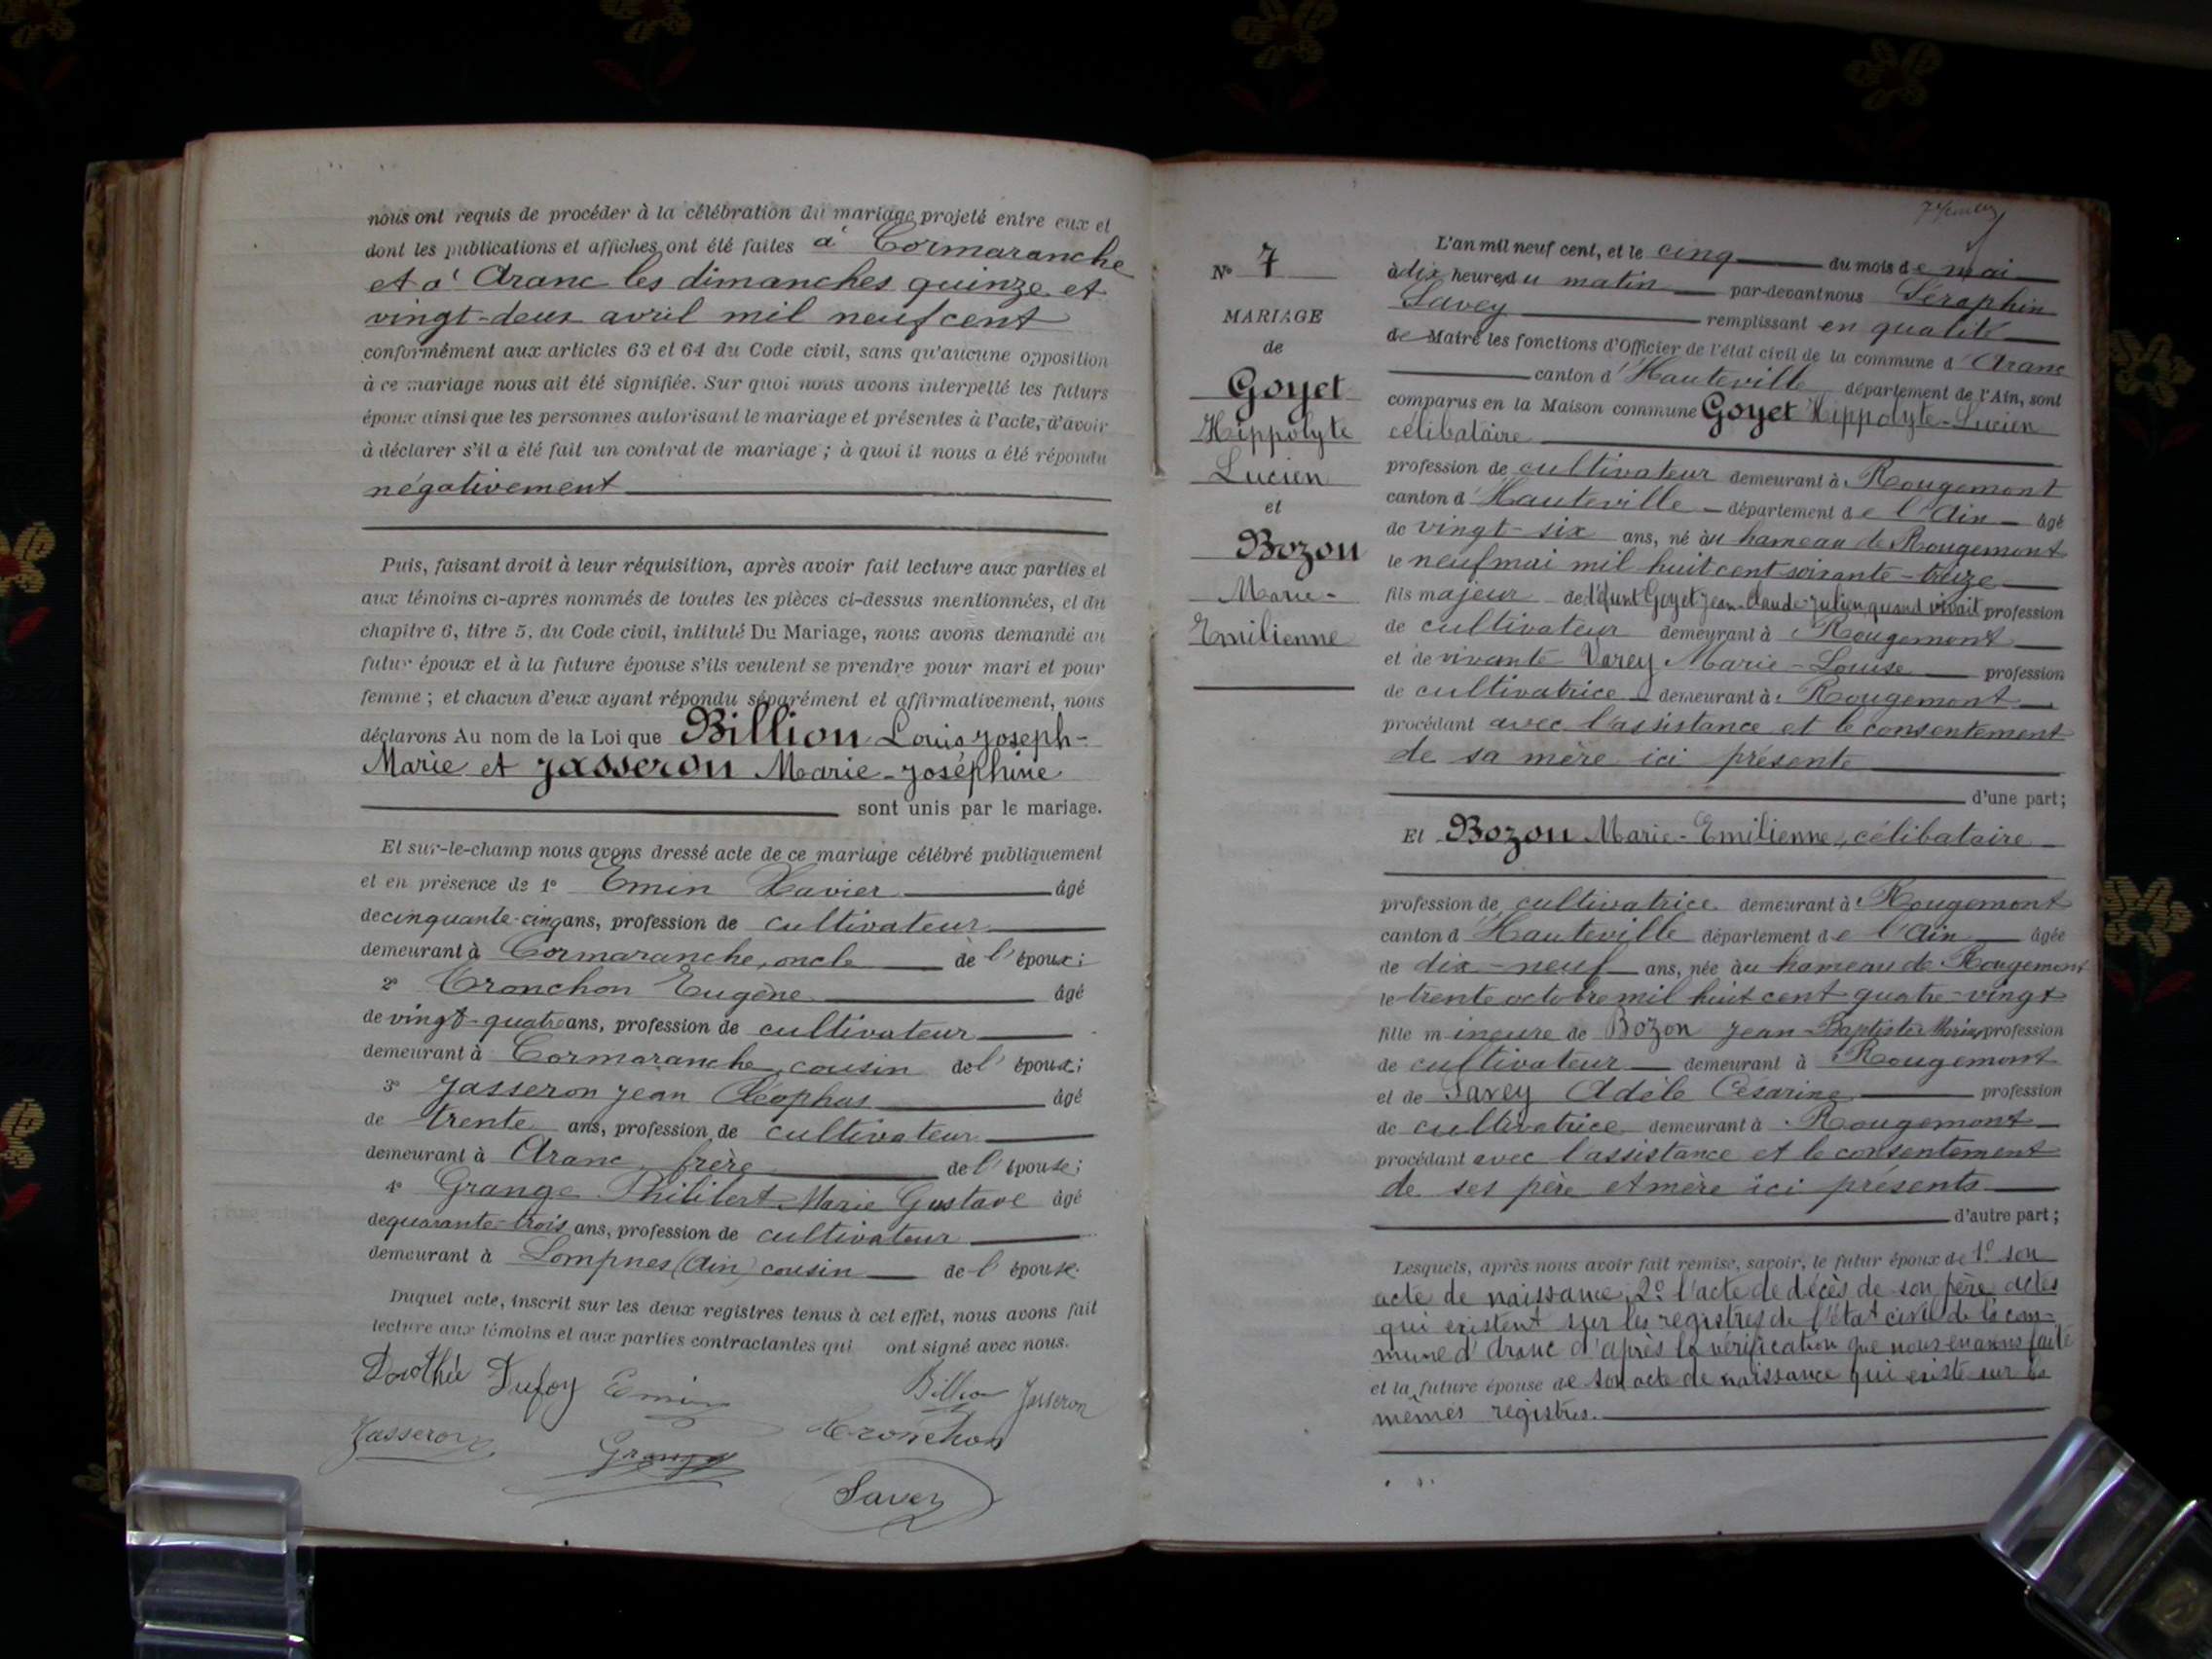 nous ont requis de procéder à la célébration du mariage projeté entre eux et
dont les publications et affiches ont été faites à Cormaranche
et à Aranc les dimanches quinze et
vingt-deux avril mil neuf cent
conformément aux articles 63 et 64 du Code civil, sans qu'aucune opposition
à ce mariage nous ait été signifiée. Sur quoi nous avons interpellé les futurs
époux ainsi que les personnes autorisant le mariage et présentes à l'acte, d'avoir
à déclarer s'il a été fait un contrat de mariage ; à quoi il nous a été répondu
négativement
Puis, faisant droit à leur réquisition, après avoir fait lecture aux parties et
aux témoins ci-après nommés de toutes les pièces ci-dessus mentionnées, et du
chapitre 6, titre 5, du Code civil, intitulé Du Mariage, nous avons demandé au
futur époux et à la future épouse s'ils veulent se prendre pour mari et pour
femme ; et chacun d'eux ayant répondu séparément et affirmativement, nous
déclarons Au nom de la Loi que Billion Louis Joseph-
Marie et Jasseron Marie-Joséphine
sont unis par le mariage.
Et sur-le-champ nous avons dressé acte de ce mariage célébré publiquement
et en présence de 1° Emin Xavier âgé
de cinquante-cinq ans, profession de cultivateur
demeurant à Cormaranche, oncle de l'époux;
2° Tronchon Eugène âgé
de vingt-quatre ans, profession de cultivateur
demeurant à Cormaranche, cousin de l'époux;
3° Jasseron Jean Cléophas âgé
de trente ans, profession de cultivateur
demeurant à Aranc frère de l'épouse;
4° Grange Philibert Marie Gustave âgé
de quarante-trois ans, profession de cultivateur
demeurant à Lompnes (Ain) cousin de l'épouse.
Duquel acte, inscrit sur les deux registres tenus à cet effet, nous avons fait
lecture aux témoins et aux parties contractantes qui ont signé avec nous.
Dorothée Dufoy Emin Billion Jasseron
Jasseron Grange Tronchon
Savey
N° 7
MARIAGE
de
Goyet
Hippolyte
Lucien
et
Bozon
Marie-
Emilienne
L'an mil neuf cent, et le cinq du mois de mai
à dix heures du matin par-devant nous Séraphin
Savey remplissant en qualité
de Maire les fonctions d'Officier de l'état civil de la commune d'Aranc
canton d'Hauteville département de l'Ain, sont
comparus en la Maison commune Goyet Hippolyte-Lucien
célibataire
profession de cultivateur demeurant à Rougemont
canton d'Hauteville département de l'Ain âgé
de vingt-six ans, né au hameau de Rougemont
le neuf mai mil huit cent soixante-treize
fils majeur de défunt Goyet Jean-Claude-Julien quand vivait profession
de cultivateur demeurant à Rougemont
et de vivante Varey Marie-Louise profession
de cultivatrice demeurant à Rougemont
procédant avec l'assistance et le consentement
de sa mère ici présente
d'une part;
Et Bozon Marie-Emilienne, célibataire
profession de cultivatrice demeurant à Rougemont
canton d'Hauteville département de l'Ain âgée
de dix-neuf ans, née au hameau de Rougemont
le trente octobre mil huit cent quatre-vingt
fille mineure de Bozon Jean-Baptiste Marie profession
de cultivateur demeurant à Rougemont
et de Savey Adèle Césarine profession
de cultivatrice demeurant à Rougemont
procédant avec l'assistance et le consentement
de ses père et mère ici présents
d'autre part;
Lesquels, après nous avoir fait remise, savoir, le futur époux de 1° son
acte de naissance 2° l'acte de décès de son père actes
qui existent sur les registres de l'état civil de la com-
mune d'Aranc d'après la vérification que nous en avons faite
et la future épouse de son acte de naissance qui existe sur les
mêmes registres.